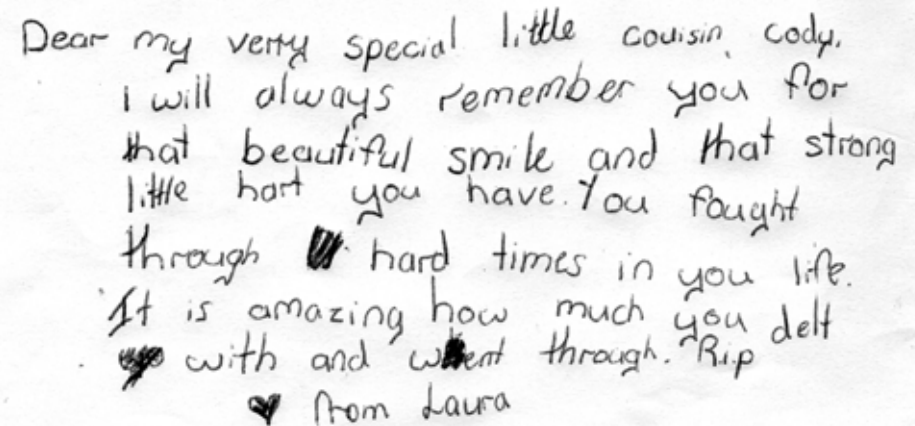 Dear my verry special little couisin, cody.
I will always remember you for
that beautiful smile and that strong
little hart you have. You fought
through hard times in you life.
It is amazing how much you delt
with and went through. R.i.p
♥ from Laura